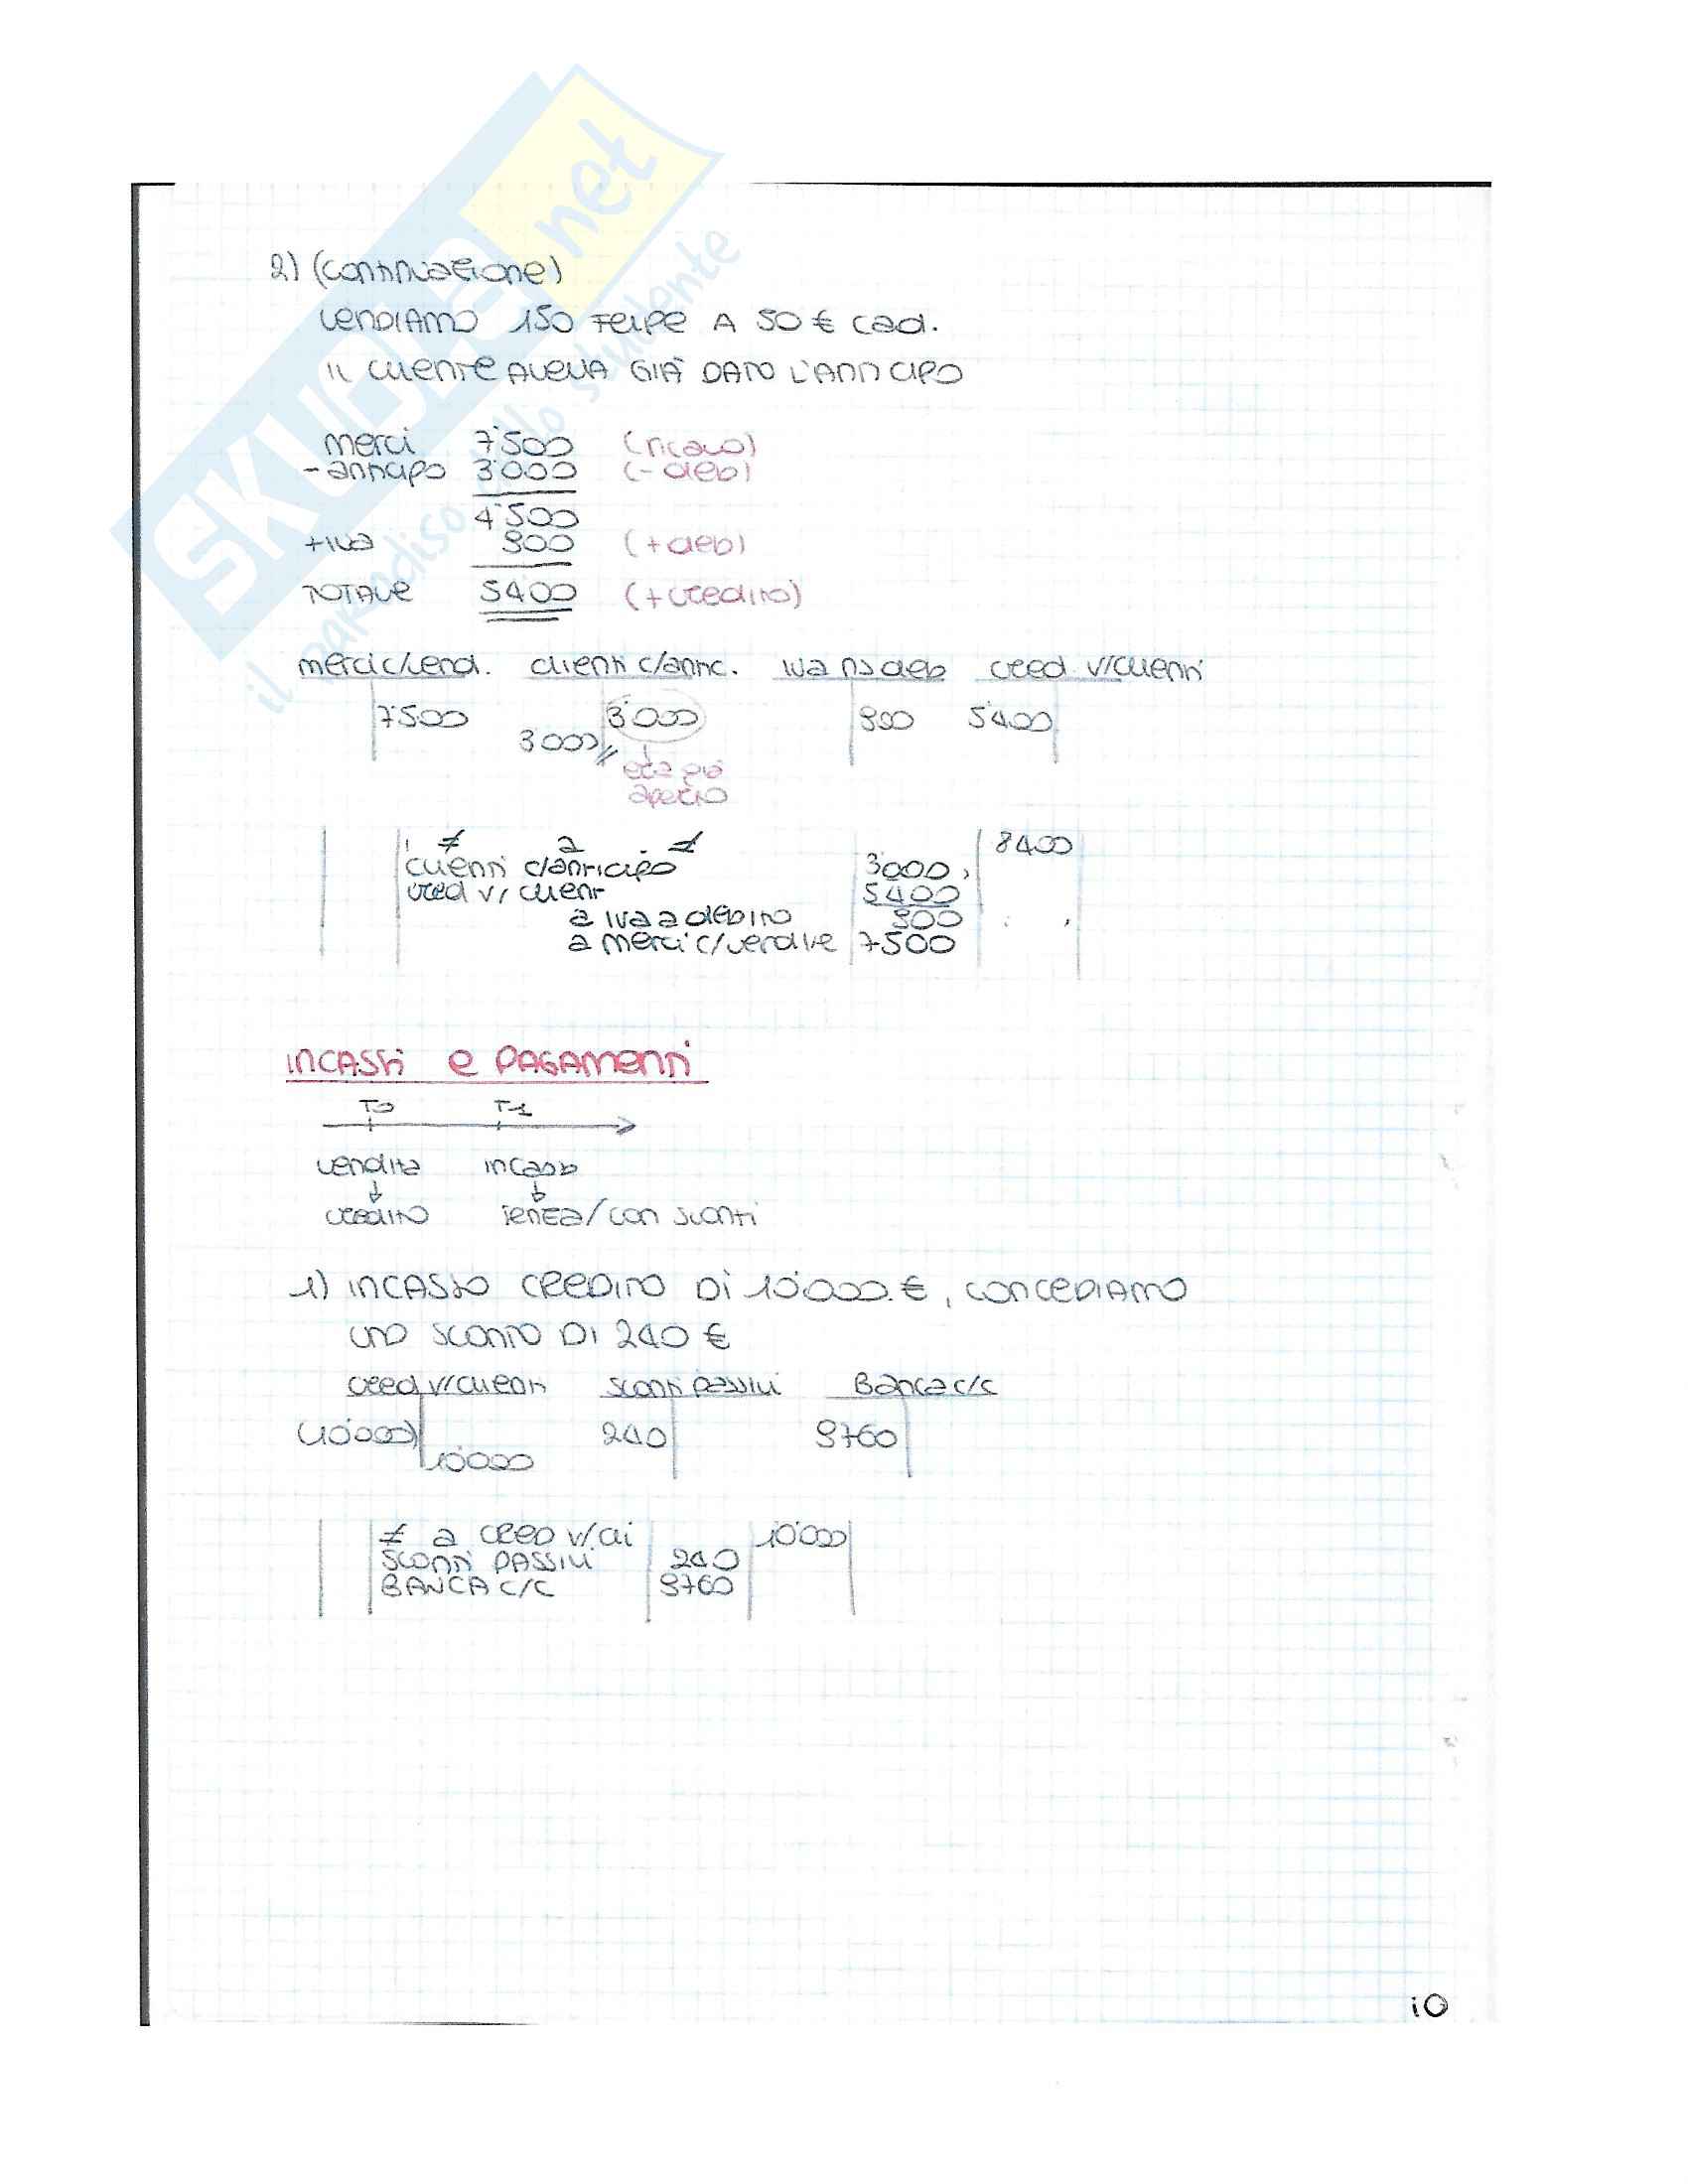 SKUOLA.net
il paradiso dello studente
2) (continuazione)
VENDIAMO 150 FELPE A 50 € cad.
IL CLIENTE AVEVA GIÀ DATO L'ANTICIPO
merci 7'500 (ricavo)
- anticipo 3'000 (- deb)
4'500
+ iva 900 (+ deb)
TOTALE 5400 (+ credito)
merci c/vend. clienti c/antic. iva ns deb cred v/clienti
7'500 3'000 900 5400
3000
era già
aperto
≠ a ≠ 8400
clienti c/anticipo 3000
cred v/ clienti 5400
a iva a debito 900
a merci c/vendite 7500
INCASSI e PAGAMENTI
T0 T1
vendita incasso
credito senza/con sconti
1) INCASSO CREDITO DI 10'000 €, CONCEDIAMO
UNO SCONTO DI 240 €
cred v/clienti sconti passivi Banca c/c
(10'000) 240 9760
10'000
≠ a CRED v/cli 10'000
SCONTI PASSIVI 240
BANCA C/C 9760
10